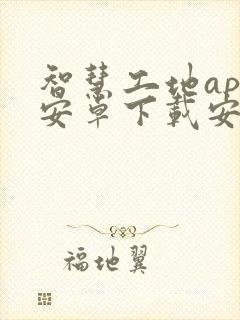 智慧工地ap
安卓下载安
福地翼